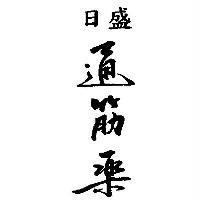 日盛
通筋薬